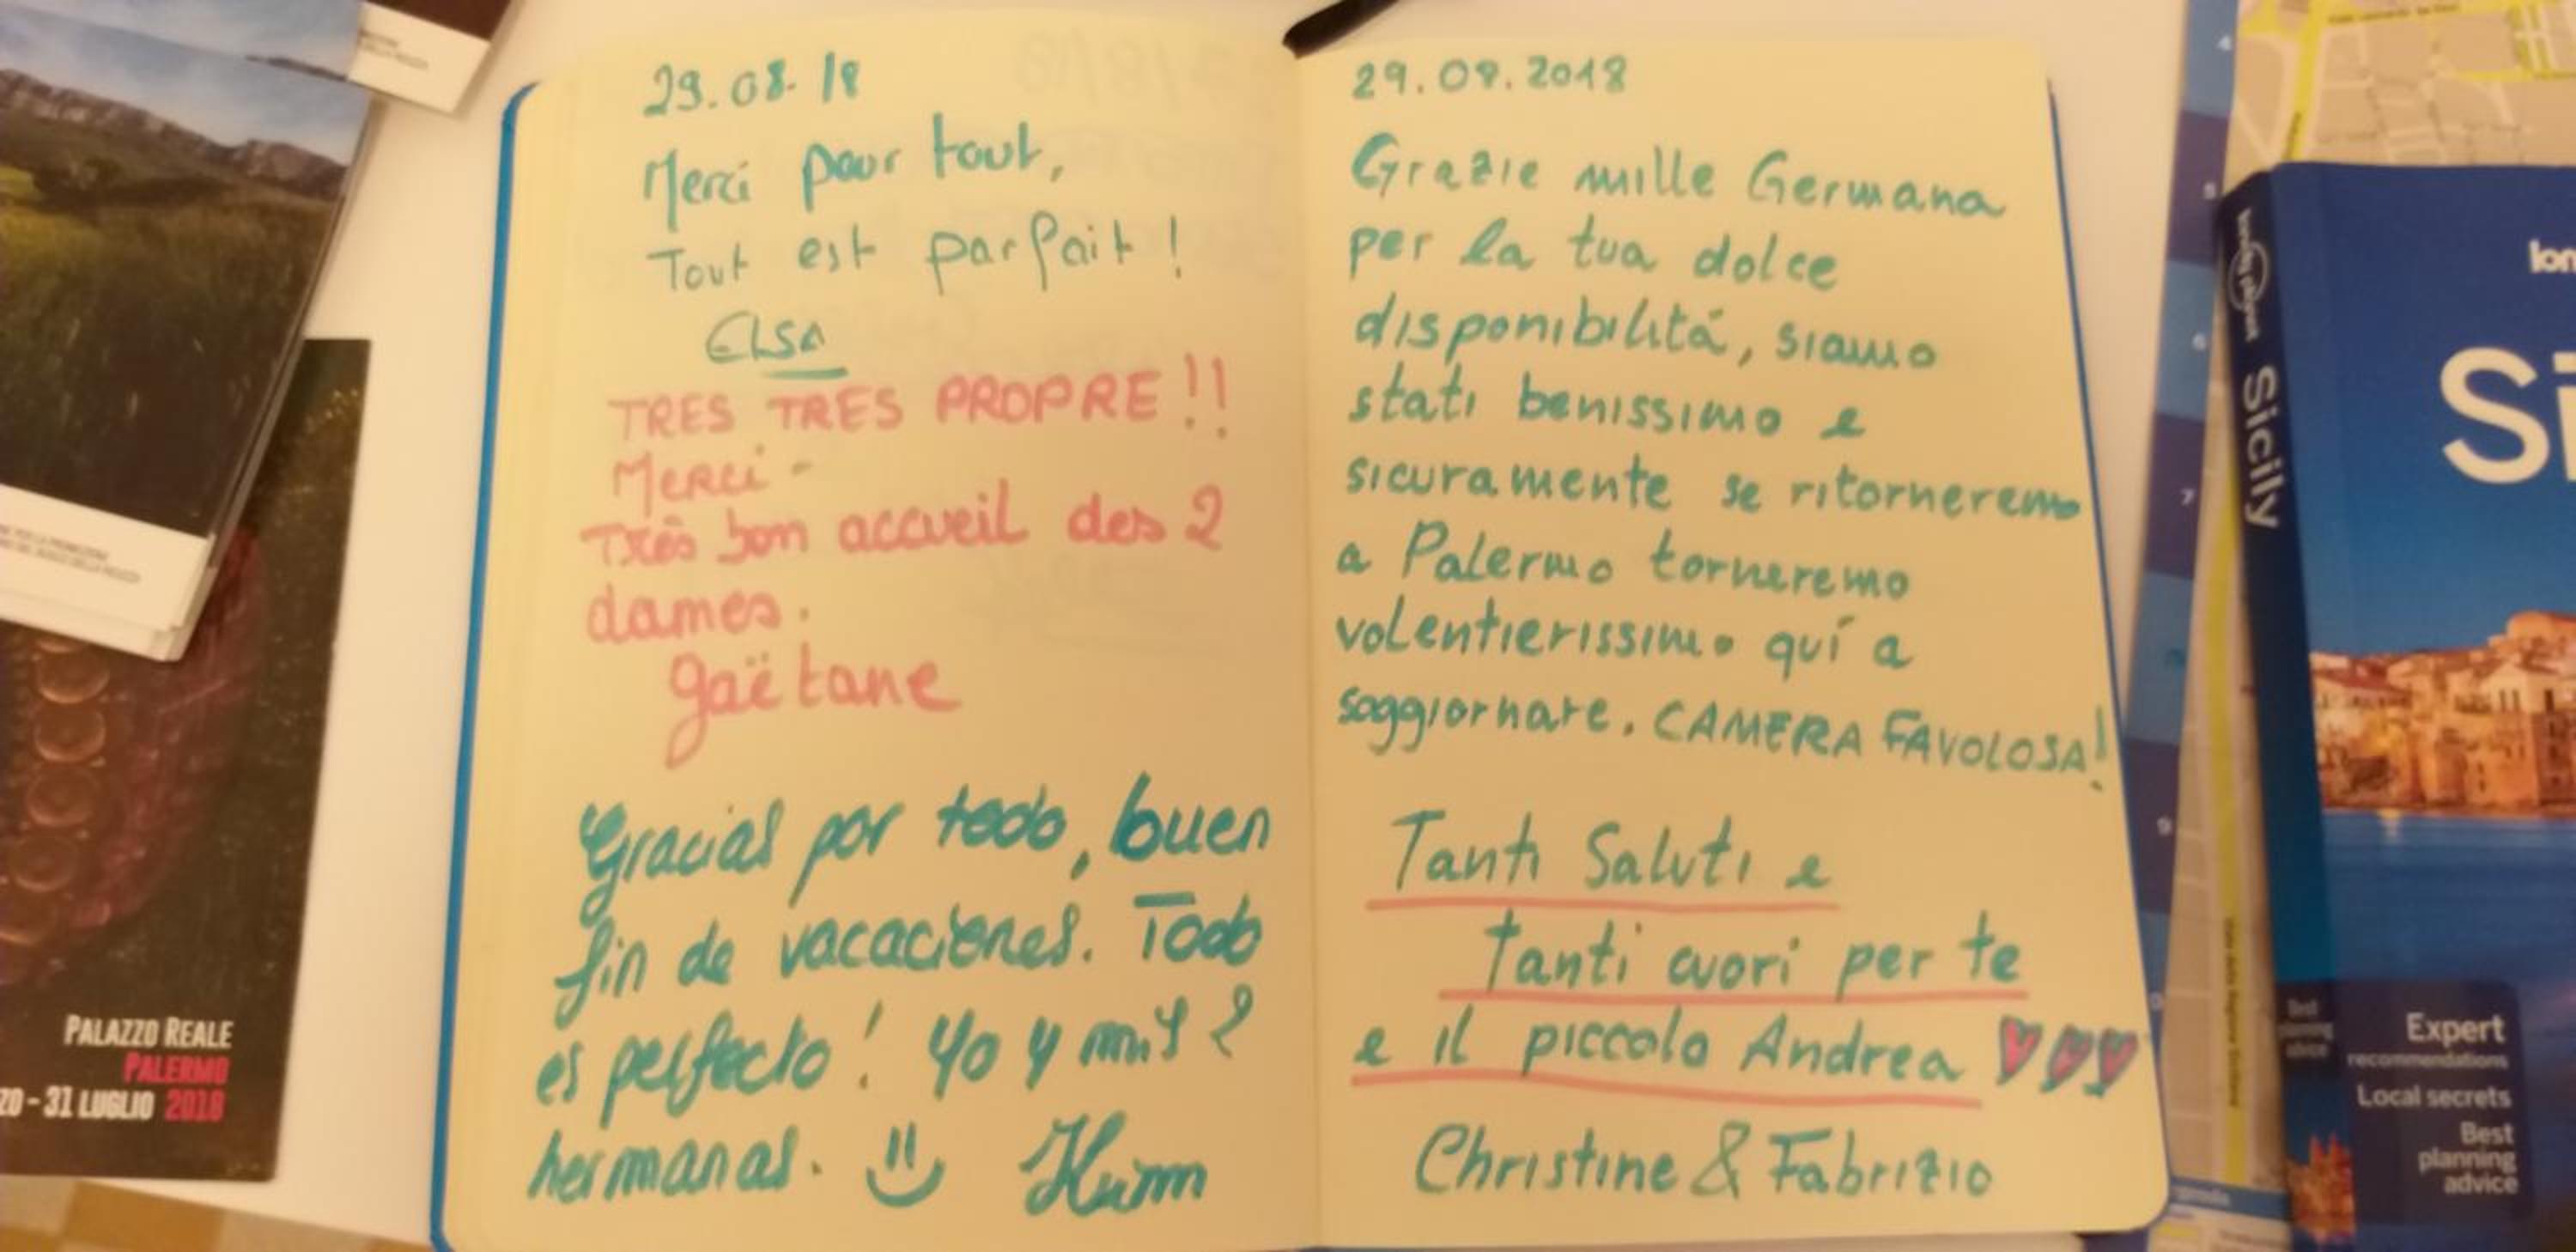 23.08.18
Merci pour tout,
Tout est parfait !
ELSA
TRES TRES PROPRE !!
Merci -
Très bon accueil des 2
dames.
gaëtane
Gracias por todo, buen
fin de vacaciones. Todo
es perfecto ! Yo y mis 2
hermanas.
29.08.2018
Grazie mille Germana
per la tua dolce
disponibilitá, siamo
stati benissimo e
sicuramente se ritorneremo
a Palermo torneremo
volentierissimo quí a
soggiornare. CAMERA FAVOLOSA!
Tanti Saluti e
tanti cuori per te
e il piccolo Andrea
Christine & Fabrizio
PALAZZO REALE
PALERMO
ZO - 31 LUGLIO 2018
lonely planet Sicily
lon
Si
Expert
recommendations
Local secrets
Best
planning
advice
Best
planning
advice